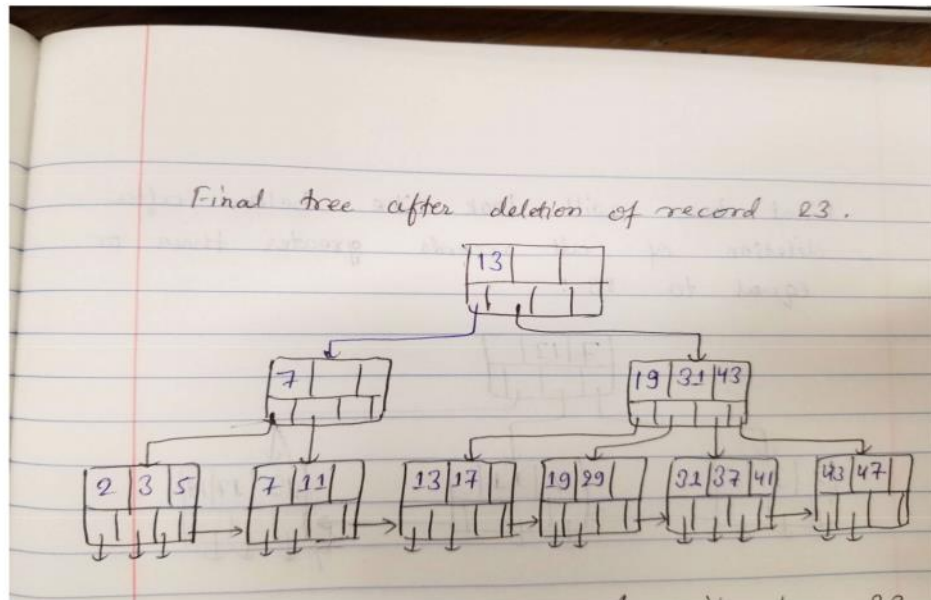 Final tree after deletion of record 23.
13
7
19 31 43
2 3 5 7 11 13 17 19 29 31 37 41 43 47